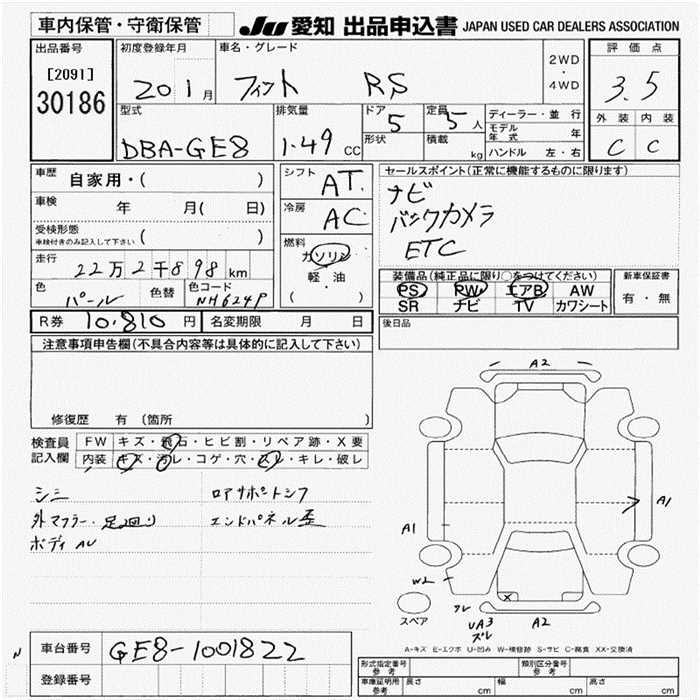 車内保管・守衛保管
JU 愛知 出品申込書 JAPAN USED CAR DEALERS ASSOCIATION
出品番号
[2091]
30186
初度登録年月
20 1月
車名・グレード
フィット RS
2WD
・
4WD
評価点
3.5
外装 内装
C C
型式
DBA-GE8
排気量
1.49 CC
ドア
5
形状
定員
5人
積載
kg
ディーラー・並行
モデル年式 年
ハンドル 左・右
車歴 自家用・( )
車検 年 月( 日)
受検形態
車検付きのみ記入して下さい ( )
走行
22万2千898km
色
パール
色替
色コード
NH624P
シフト
AT
冷房
AC
燃料
ガソリン
軽・油
( )
セールスポイント(正常に機能するものに限ります)
ナビ
バックカメラ
ETC
装備品(純正品に限り○をつけてください)
PS PW エアB AW
SR ナビ TV カワシート
新車保証書
有・無
R券 10,810 円 名変期限 月 日
後日品
注意事項申告欄(不具合内容等は具体的に記入して下さい)
修復歴 有 (箇所
検査員
記入欄
FW キズ・飛石・ヒビ割・リペア跡・X要
内装 キズ・汚レ・コゲ・穴・スレ・キレ・破レ
シミ
外マフラー・足回り
ボディ
ロアサポートシフ
エンドパネル歪
A2
A1
A1
W2
X
スレ
UA3
ズレ
A2
スペア
A-キズ E-エクボ U-凹み W-補修跡 S-サビ C-腐食 XX-交換済
N
車台番号 GE8-1001822
登録番号
形式指定番号
参考
類別区分番号
参考
車庫証明用
参考
長さ cm 幅 cm 高さ cm